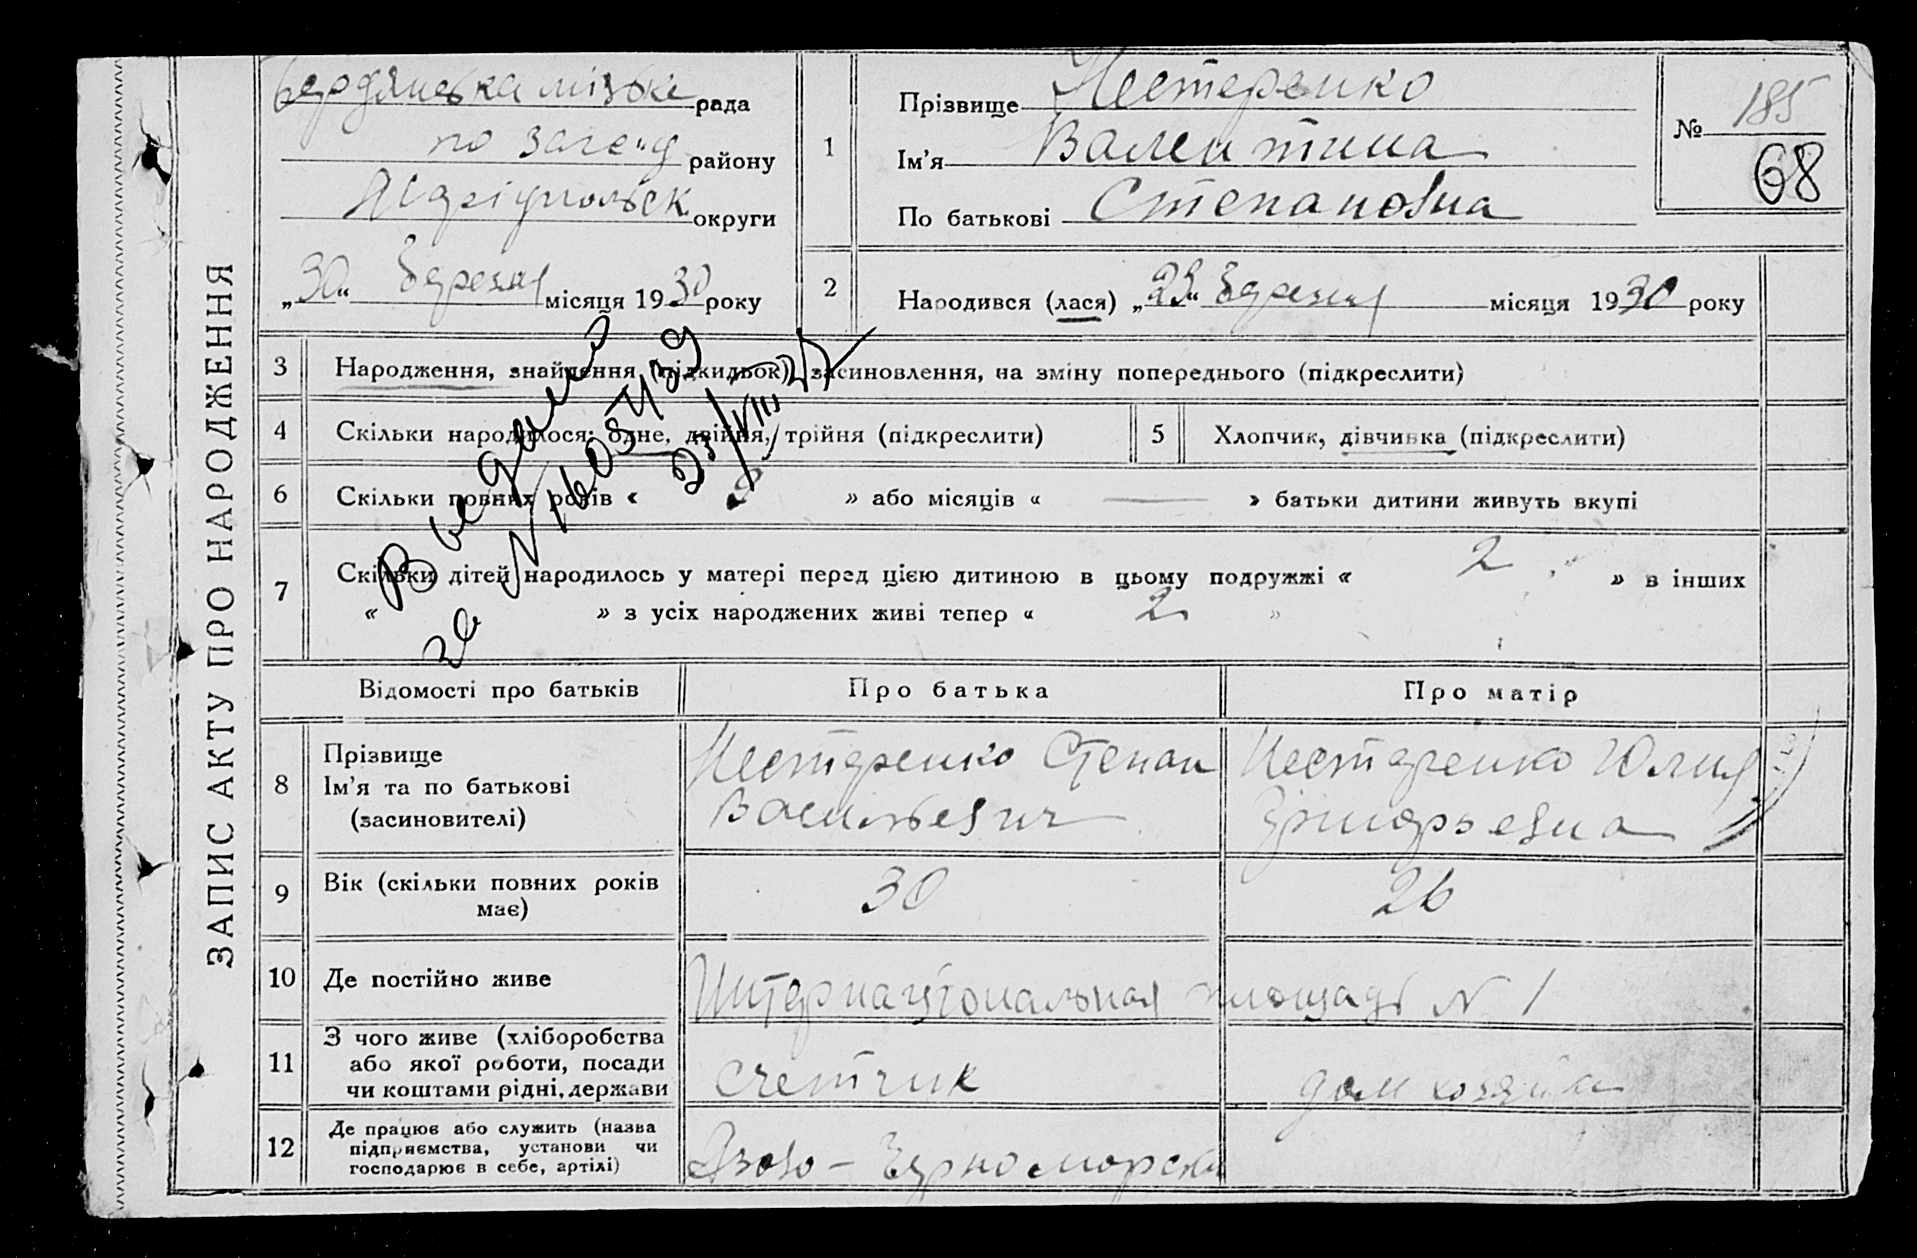 ЗАПИС АКТУ ПРО НАРОДЖЕННЯ
Бердянська міська рада
по загсу району
Маріупольськ округи
„30“ березня місяця 1930 року
1
Прізвище Нестеренко
Ім'я Валентина
По батькові Степановна
№ 185
68
2
Народився (лася) „23“ березня місяця 1930 року
3 Народження, знайдення (підкидьок), засиновлення, на зміну попереднього (підкреслити)
4 Скільки народилося: одне, двійня, трійня (підкреслити)
5 Хлопчик, дівчинка (підкреслити)
6 Скільки повних років « 8 » або місяців « — » батьки дитини живуть вкупі
7 Скільки дітей народилось у матері перед цією дитиною в цьому подружжі « 2 » в інших
« » з усіх народжених живі тепер « 2 »
Відомості про батьків Про батька Про матір
8
Прізвище
Ім'я та по батькові
(засиновителі)
Нестеренко Степан
Васильевич
Нестеренко Юлия
Григорьевна
9 Вік (скільки повних років
має)
30
26
10 Де постійно живе
Интернаціональная площаді N 1
11
З чого живе (хліборобства
або якої роботи, посади
чи коштами рідні, держави
счетчик
дом хозяйка
12
Де працює або служить (назва
підприємства, установи чи
господарює в себе, артілі)
Азово-Черноморск